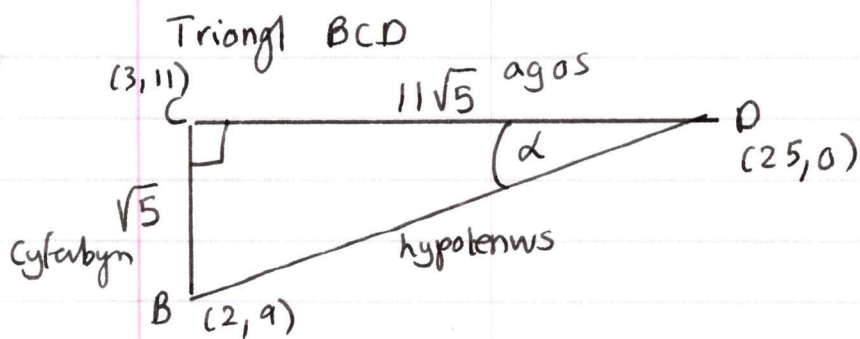 Triongl BCD
(3,11)
C
11√5 agos
D
(25,0)
α
√5
Cyferbyn
hypotenws
B (2,9)